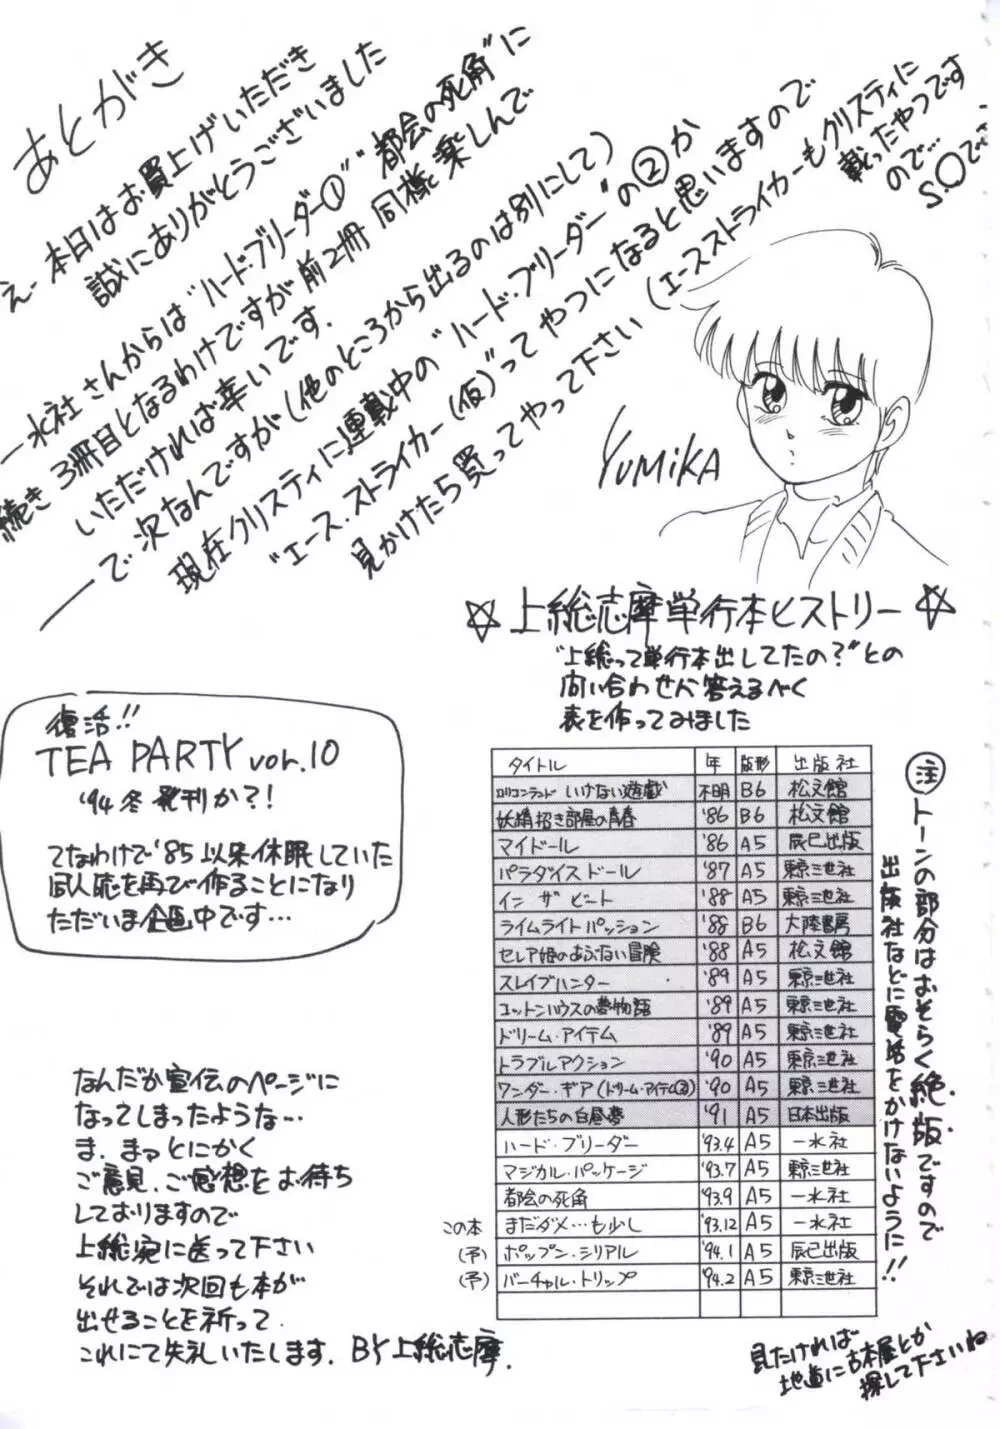 あとがき
え-本日はお買上げいただき
誠にありがとうございました
一水社さんからは"ハード・ブリーダー①""都会の死角"に
続き3冊目となるわけですが前2冊同様楽しんで
いただければ幸いです.
で次なんですが(他のところから出るのは別にして)
現在クリスティに連載中の"ハード・ブリーダー"の②か
"エース.ストライカー(仮)"ってやつになると思いますので
見かけたら買ってやって下さい(エースストライカーもクリスティに
載ったやつです
ので…
S.O
YUMiKA
☆上総志摩単行本ヒストリー☆
"上総って単行本出してたの?"との
問い合わせに答えるべく
表を作ってみました
復活!!
TEA PARTY vol.10
'94冬発刊か?!
てなわけで'85以来休眠していた
同人誌を再び作ることになり
ただいま企画中です…
タイトル 年 版形 出版社
ロリコンランド いけない遊戯 不明 B6 松文館
妖精招き部屋の青春 '86 B6 松文館
マイドール '86 A5 辰巳出版
パラダイスドール '87 A5 東京三世社
イン ザ ビート '88 A5 東京三世社
ライムライトパッション '88 B6 大陸書房
セレア姫のあぶない冒険 '88 A5 松文館
スレイブハンター '89 A5 東京三世社
コットンハウスの夢物語 '89 A5 東京三世社
ドリーム・アイテム '89 A5 東京三世社
トラブルアクション '90 A5 東京三世社
ワンダー・ギア(ドリーム・アイテム②) '90 A5 東京三世社
人形たちの白昼夢 '91 A5 日本出版
ハード・ブリーダー '93.4 A5 一水社
マジカル・パッケージ '93.7 A5 東京三世社
都会の死角 '93.9 A5 一水社
この本 まだダメ…も少し '93.12 A5 一水社
(予) ポップン・シリアル '94.1 A5 辰巳出版
(予) バーチャル・トリップ '94.2 A5 東京三世社
注 トーンの部分はおそらく絶版ですので
出版社などに電話をかけないように!!
見たければ
地道に古本屋とか
探して下さいね
なんだか宣伝のページに
なってしまったような…
ま.まっとにかく
ご意見、ご感想をお待ち
しておりますので
上総宛に送って下さい
それでは次回も本が
出せることを祈って.
これにて失礼いたします. BY上総志摩.